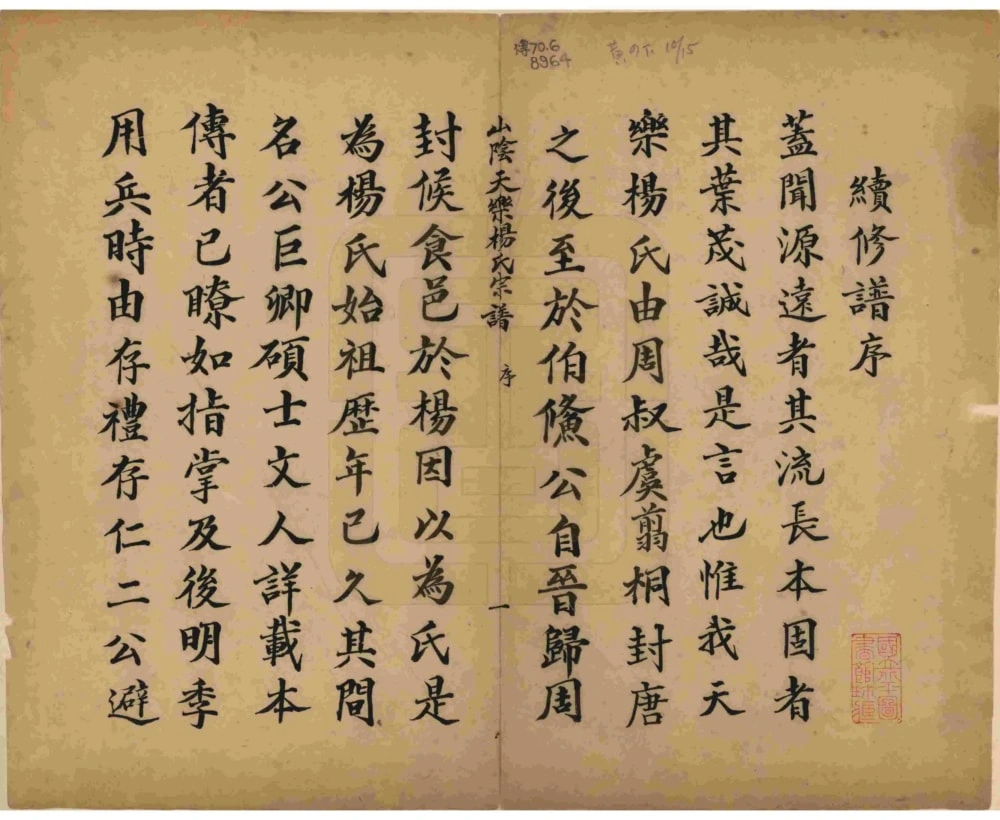 續修譜序
蓋聞源遠者其流長本固者
其葉茂誠哉是言也惟我天
樂楊氏由周叔虞翦桐封唐
之後至於伯僑公自晉歸周
山陰天樂楊氏宗譜 序 一
封候食邑於楊因以為氏是
為楊氏始祖歴年已久其間
名公巨卿碩士文人詳載本
傳者已瞭如指掌及後明季
用兵時由存禮存仁二公避
70.6
8964
10/15